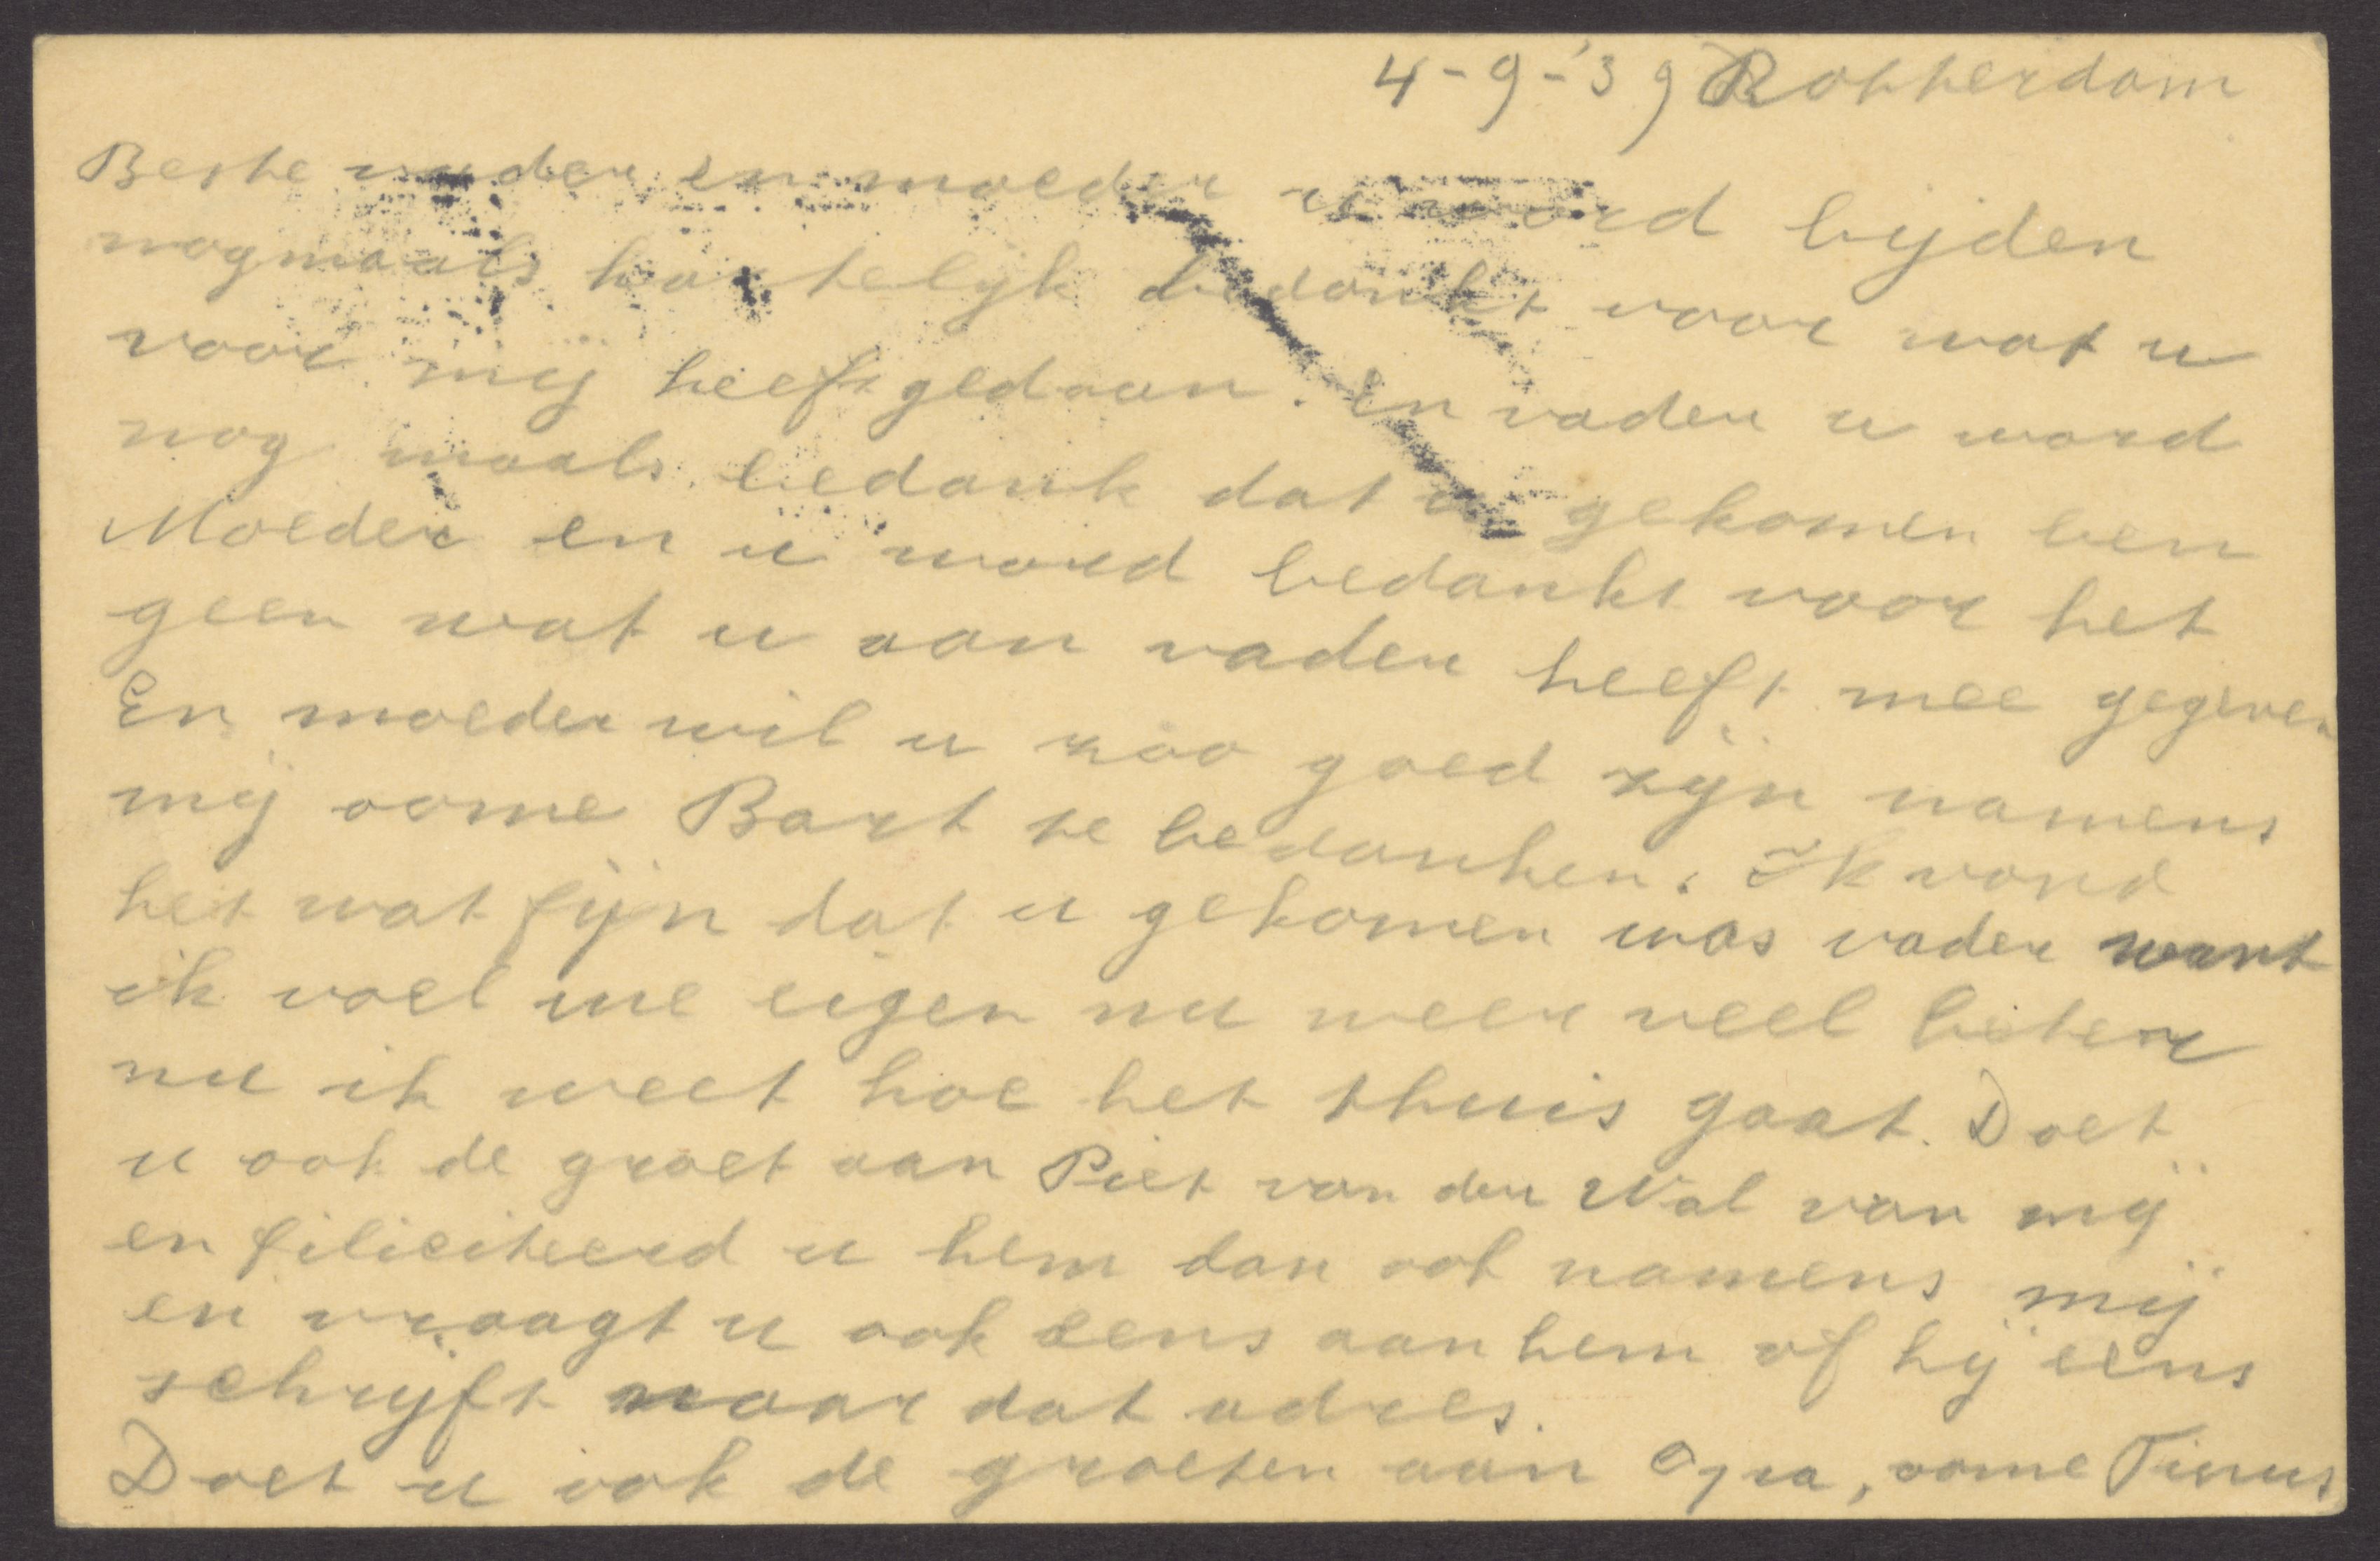 4-9-'39 Rotterdam
Beste vader en moeder u word bijden
nogmaals hartelijk bedankt voor wat u
voor mij heeft gedaan. En vader u word
nog maals bedank dat u gekomen ben
Moeder en u word bedankt voor het
geen wat u aan vader heeft mee gegeven
En moeder wil u zoo goed zijn namens
mij oome Bart te bedanken. Ik vond
het wat fijn dat u gekomen was vader want
ik voel me eigen nu weer veel beter
nu ik weet hoe het thuis gaat. Doet
u ook de groet aan Piet van der Wal van mij
en filiciteerd u hem dan ook namens mij
en vraagt u ook eens aan hem of hij eens
schrijft naar dat adres.
Doet u ook de groeten aan Opa, oome Tinus